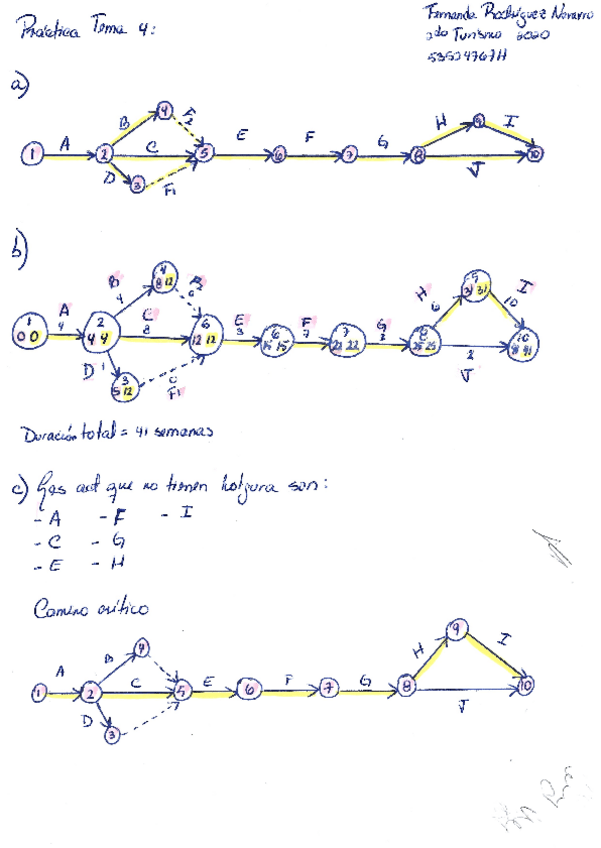 Práctica Tema 4:
Fernanda Rodríguez Navarro
2do Turismo 2020
a)
1 A 2 B 4 F2 C D 3 F1 5 E 6 F 7 G 8 H 9 I J 10
b)
1 0 0
A 4
2 4 4
B 4
4 8 12
F2 0
C 8
D 1
3 5 12
0 F1
12 12
E 3
6 15 15
F 7
7 22 22
G 2
8
H 6
9 31 31
I 10
2 J
10 41 41
Duración total = 41 semanas
c) Las act que no tienen holgura son:
- A - F - I
- C - G
- E - H
Camino crítico
1 A 2 B 4 C D 3 5 E 6 F 7 G 8 H 9 I J 10